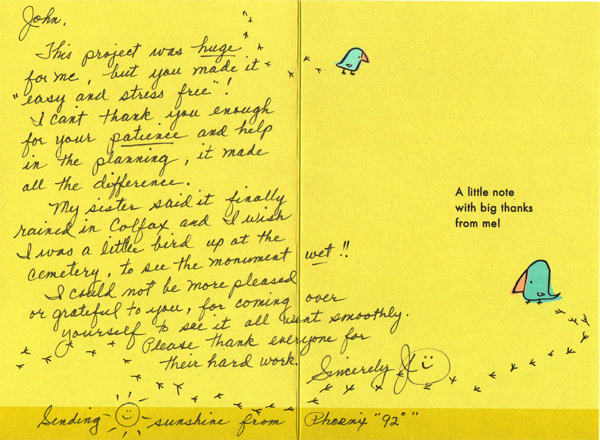 John,
This project was huge
for me, but you made it
"easy and stress free"!
I cant thank you enough
for your patience and help
in the planning, it made
all the difference.
My sister said it finally
rained in Colfax and I wish
I was a little bird up at the
cemetery, to see the monument wet!!
I could not be more pleased
or grateful to you, for coming over
yourself to see it all went smoothly.
Please thank everyone for
their hard work.
Sincerely
Sending sunshine from Phoenix "92°"
A little note
with big thanks
from me!